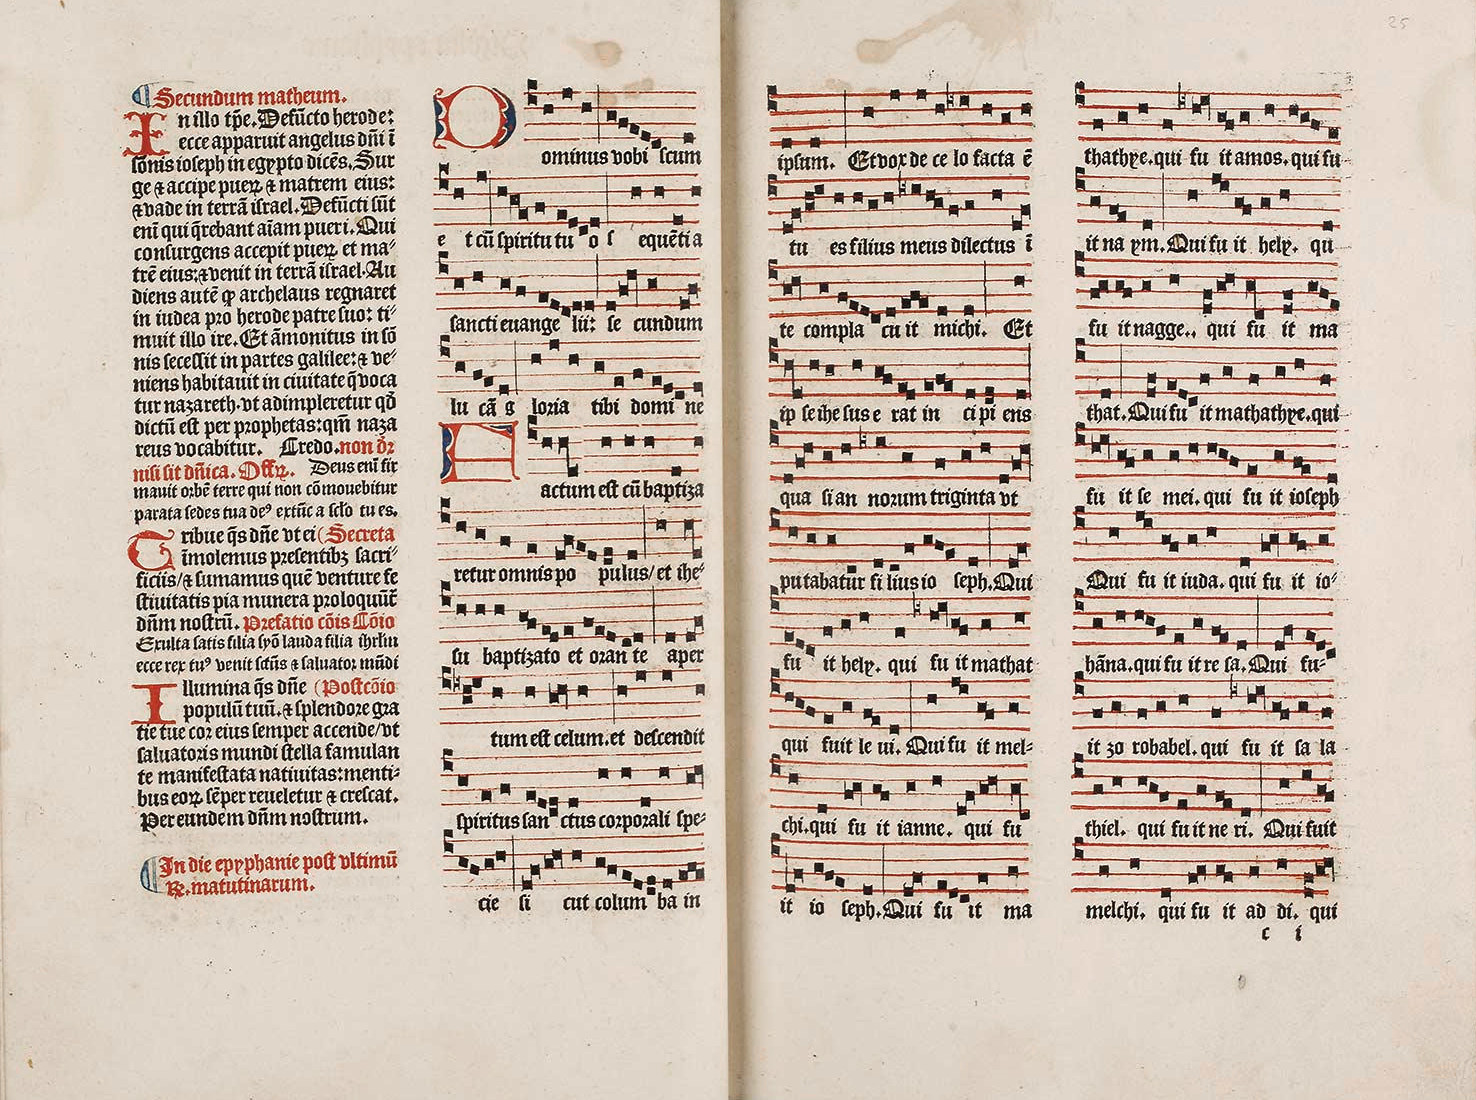 Secundum matheum.
In illo tp̄e. Defūcto herode:
ecce apparuit angelus dn̄i ī
sōnis ioseph in egypto dicēs. Sur
ge ⁊ accipe pueꝝ ⁊ matrem eius:
⁊ vade in terrā israel. Defūcti sūt
eni qui q̄rebant aīam pueri. Qui
consurgens accepit pueꝝ et ma⸗
trē eius: ⁊ venit in terrā israel. Au
diens autē ꝙ archelaus regnaret
in iudea pro herode patre suo: ti⸗
muit illo ire. Et āmonitus in sō
nis secessit in partes galilee: ⁊ ve⸗
niens habitauit in ciuitate q̄ voca
tur nazareth. vt adimpleretur qd̄
dictū est per prophetas: qm̄ naza
reus vocabitur. Credo. non dr̄
nisi sit dn̄ica. Offꝝ. Deus eni fir
mauit orbē terre qui non cōmouebitur
parata sedes tua deꝰ extūc a sclo tu es.
Tribue q̄s dn̄e vt ei (Secreta
īmolemus presentibꝫ sacri⸗
ficiis/ ⁊ sumamus quē venture fe
stiuitatis pia munera proloquūt̄
dn̄m nostrū. Prefatio cōis Cōio
Exulta satis filia syō lauda filia ihrlm
ecce rex tuꝰ venit sct̄us ⁊ saluator mūdi
Illumina q̄s dn̄e (Postcōio
populū tuū. ⁊ splendore gra
tie tue cor eius semper accende/ vt
saluatoris mundi stella famulan
te manifestata natiuitas: menti⸗
bus eoꝝ sēper reueletur ⁊ crescat.
Per eundem dn̄m nostrum.
In die epyphanie post vltimū
℞. matutinarum.
Dominus vobi scum
e t cū spiritu tu o s equētia
sancti euange lii: se cundum
lu cā g loria tibi domi ne
Factum est cū baptiza
retur omnis po pulus/ et ihe⸗
su baptizato et oran te aper
tum est celum. et descendit
spiritus san ctus corporali spe⸗
cie si cut colum ba in
25
ipsum. Et vox de ce lo facta ē
tu es filius meus dilectus ī
te compla cu it michi. Et
ip se ihe sus e rat in ci pi ens
qua si an norum triginta vt
putabatur fi lius io seph. Qui
fu it hely. qui fu it mathat
qui fuit le ui. Qui fu it mel⸗
chi. qui fu it ianne. qui fu
it io seph. Qui fu it ma
thathye. qui fu it amos. qui fu
it na ym. Qui fu it hely. qu
fu it nagge. qui fu it ma
that. Qui fu it mathathye. qui
fu it se mei. qui fu it ioseph
Qui fu it iuda. qui fu it io⸗
hāna. qui fu it re sa. Qui fu⸗
it zo robabel. qui fu it sa la
thiel. qui fu it ne ri. Qui fuit
melchi. qui fu it ad di. qui
c i